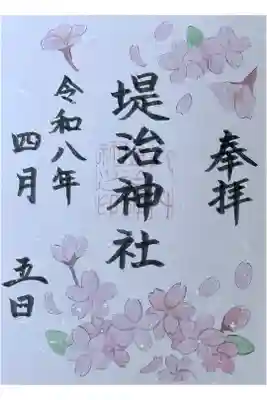 奉拝
堤治神社
令和八年
四月 五日